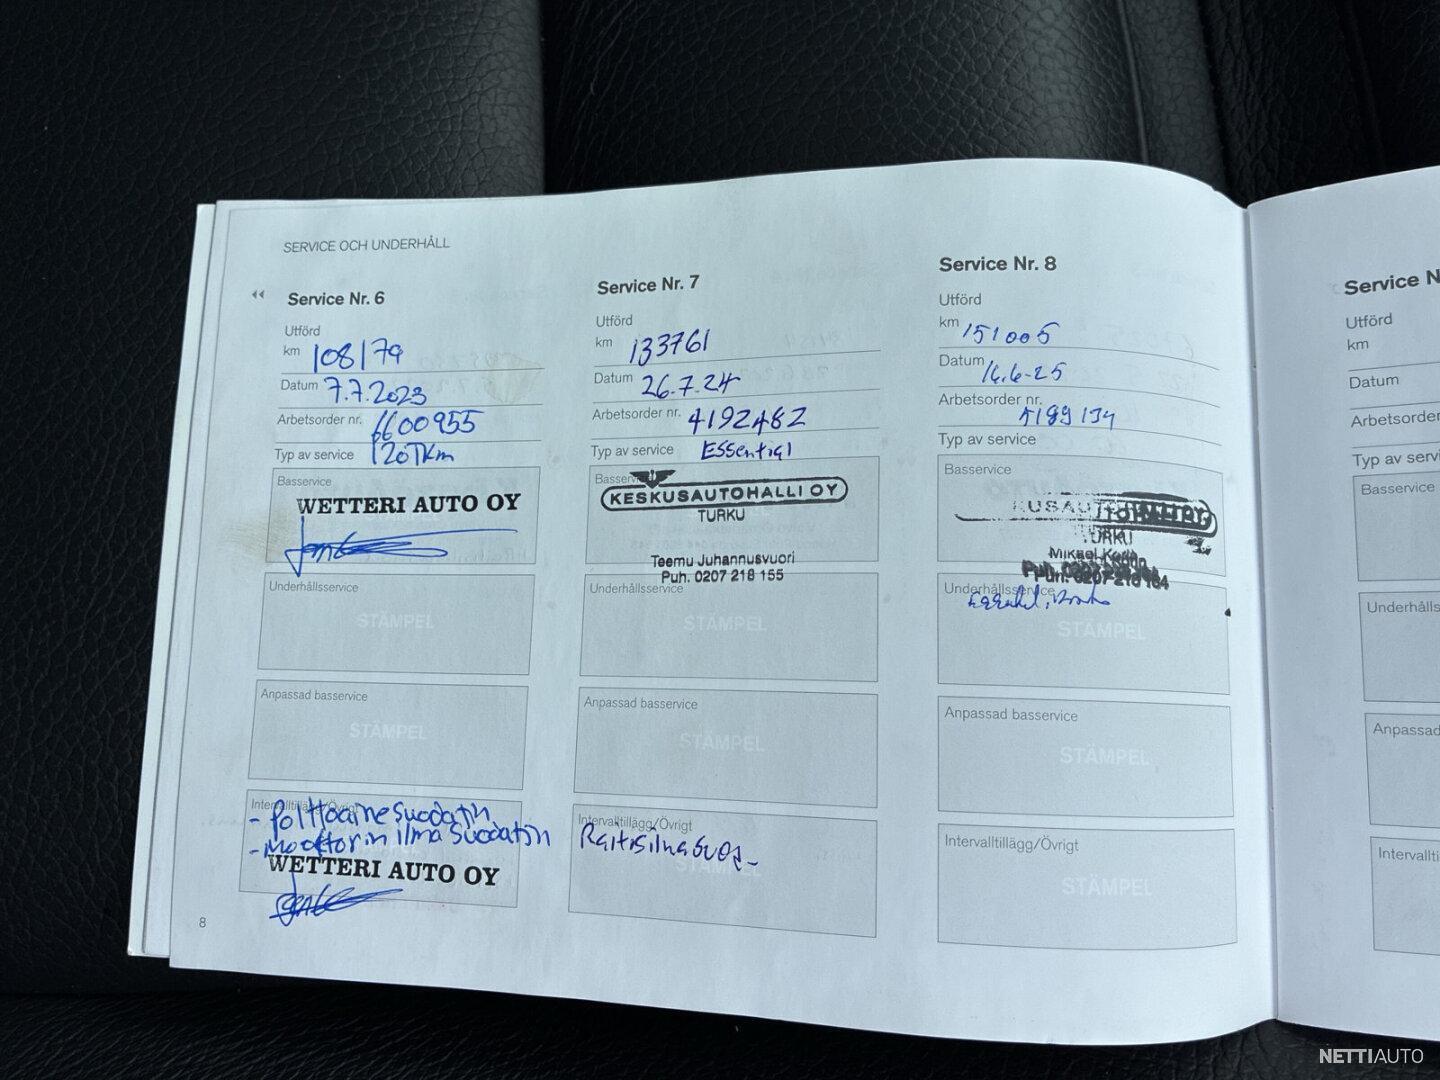 SERVICE OCH UNDERHÅLL
Service Nr. 6
Utförd
km 108179
Datum 7.7.2023
Arbetsorder nr. 6600955
Typ av service 120Tkm
Basservice
WETTERI AUTO OY
Underhållsservice
STÄMPEL
Anpassad basservice
STÄMPEL
Intervalltillägg/Övrigt
- polttoainesuodatin
- moottorin ilmasuodatin
WETTERI AUTO OY
8
Service Nr. 7
Utförd
km 133761
Datum 26.7.24
Arbetsorder nr. 4192482
Typ av service Essential
Basservice
KESKUSAUTOHALLI OY
TURKU
Teemu Juhannusvuori
Puh. 0207 218 155
Underhållsservice
STÄMPEL
Anpassad basservice
STÄMPEL
Intervalltillägg/Övrigt
Raitisilmasuod-
STÄMPEL
Service Nr. 8
Utförd
km 151005
Datum 16.6-25
Arbetsorder nr.
Typ av service
Basservice
TURKU
Underhållsservice
STÄMPEL
Anpassad basservice
STÄMPEL
Intervalltillägg/Övrigt
STÄMPEL
Service N
Utförd
km
Datum
Arbetsorder
Typ av servi
Basservice
Underhålls
Anpassad
Intervallti
NETTIAUTO